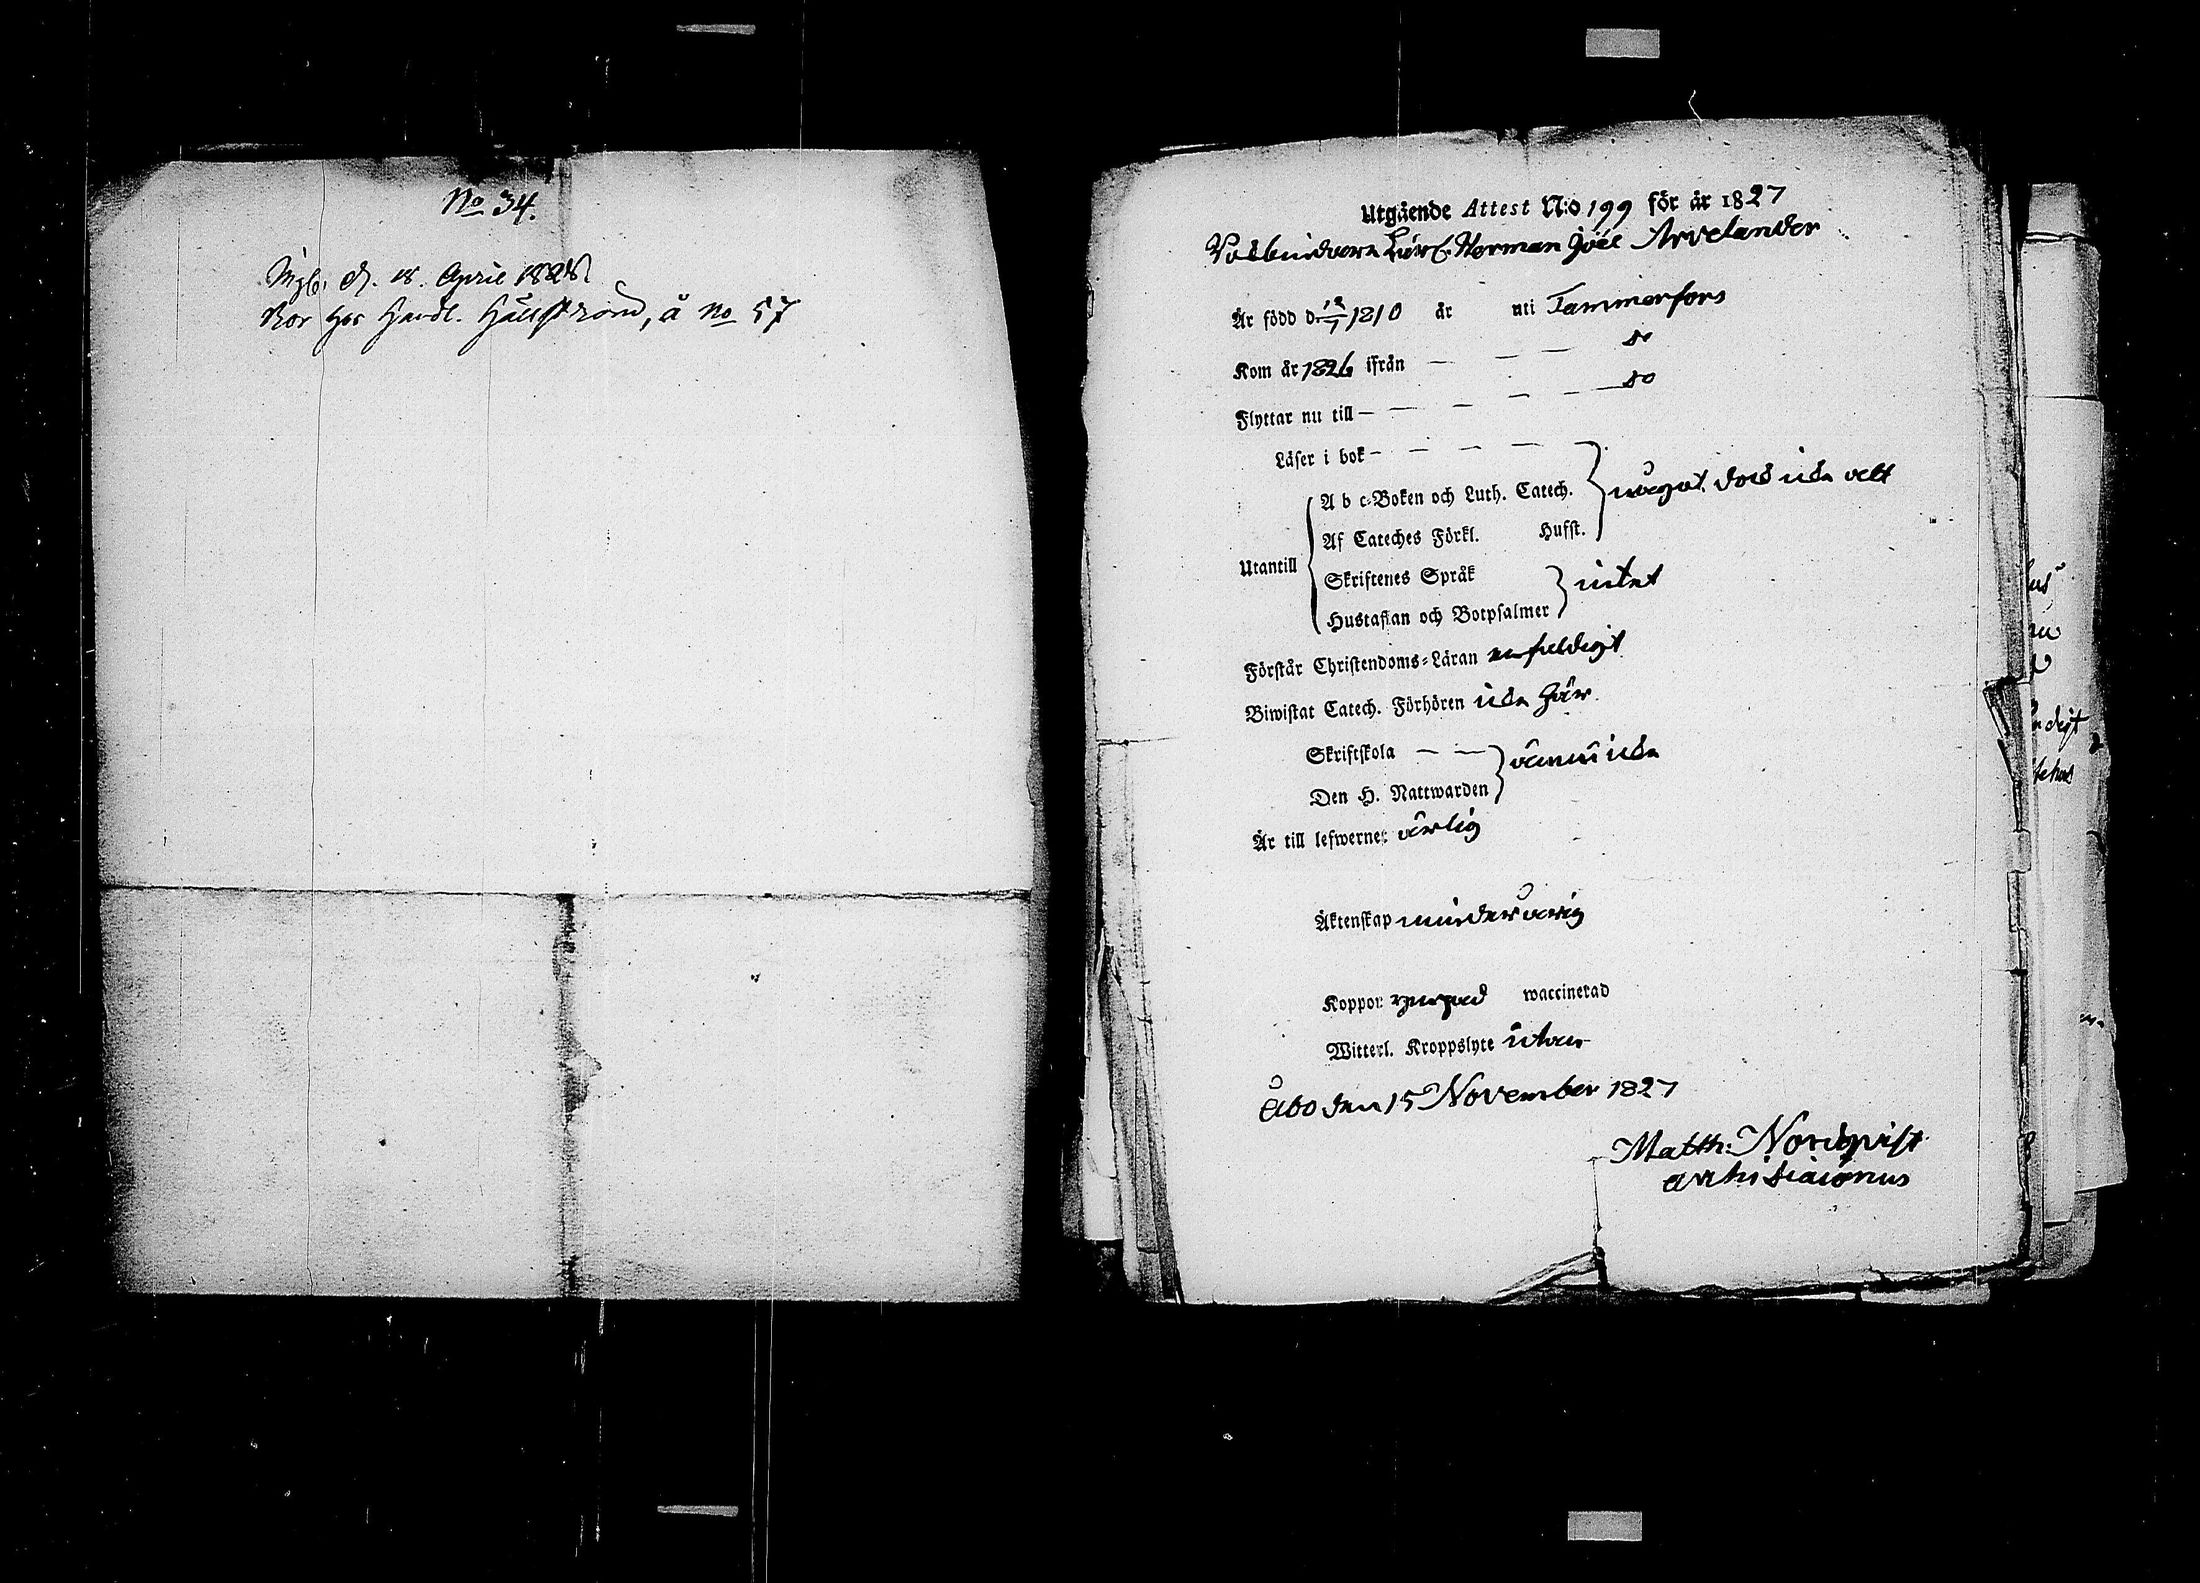 No 34.
d. 18. April 1828
Bor hos Handl. Hällstrand, å No 57
Utgående Attest N:o 199 för år 1827
Herman Joël Arvelander
Är född d. 12/1 1810 år uti Tammerfors
Kom år 1826 ifrån — — — do
Flyttar nu till — — — — — do
Läser i bok — — — —
A b c-Boken och Luth. Catech. något, dock icke allt
Af Cateches Förkl. Husst.
Utantill
Skriftenes Språk intet
Hustaflan och Botpsalmer
Förstår Christendoms-Läran enfeldigt
Biwistat Catech. Förhören icke här
Skriftskola — — ännu icke
Den H. Nattwarden
Är till lefwernet ärlig
Äktenskap minderårig
Koppor waccinerad
Witterl. Kroppslyte utan
Åbo den 15 November 1827
Matth: Nordqvist
Archidiaconus